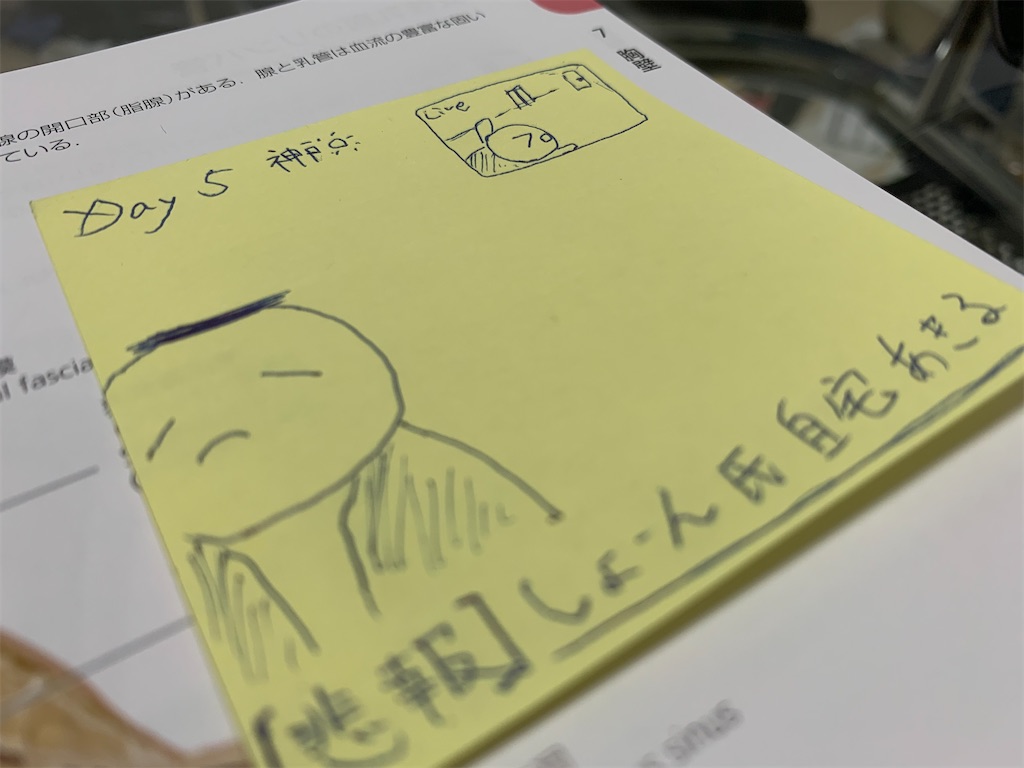 腺の開口部(脂腺)がある.腺と乳管は血流の豊富な固い
ている.
7
胸壁
Day 5 神戸
Live
70
al fascia
【悲報】しょーん氏自宅あきる
s sinus